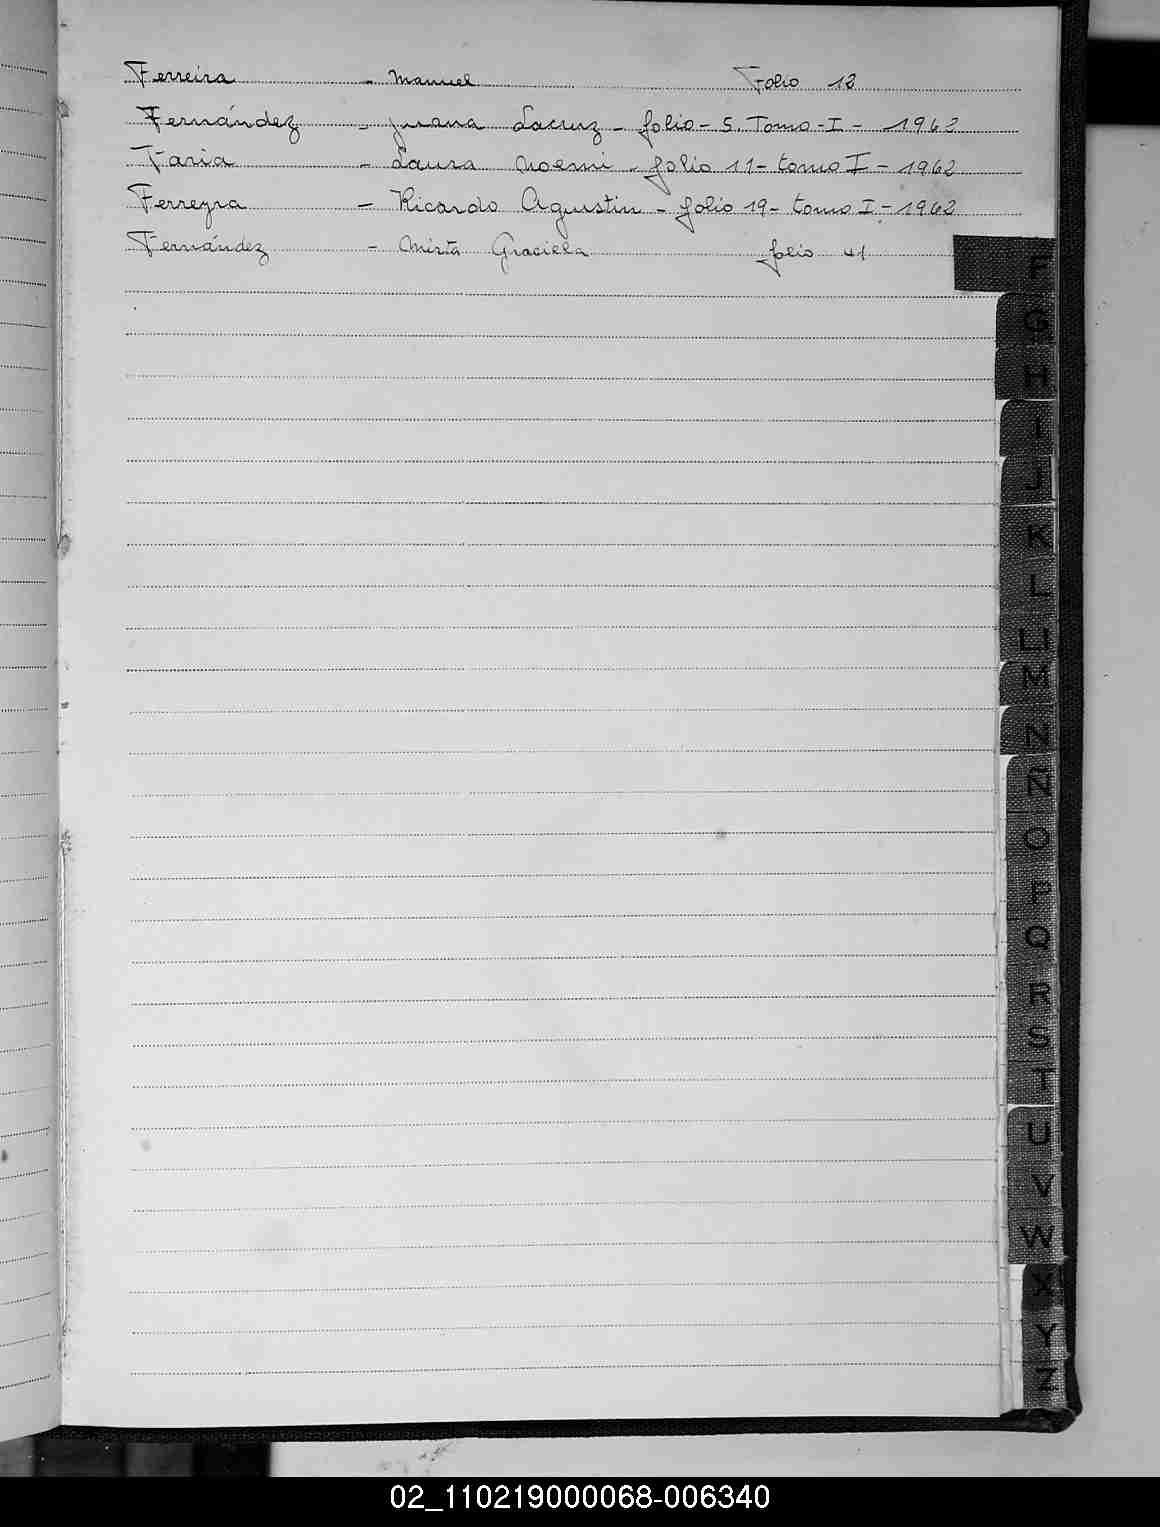 Ferreira - Manuel Folio 12
Fernández - Juana Lacruz - folio - 5. Tomo - I - 1962
Faria - Laura Noemi - folio 11 - tomo I - 1962
Ferreyra - Ricardo Agustin - folio 19 - tomo I - 1962
Fernández - Mirta Graciela folio 41
F
G
H
I
J
K
L
Ll
M
N
Ñ
O
P
Q
R
S
T
U
V
W
X
Y
Z
02_110219000068-006340